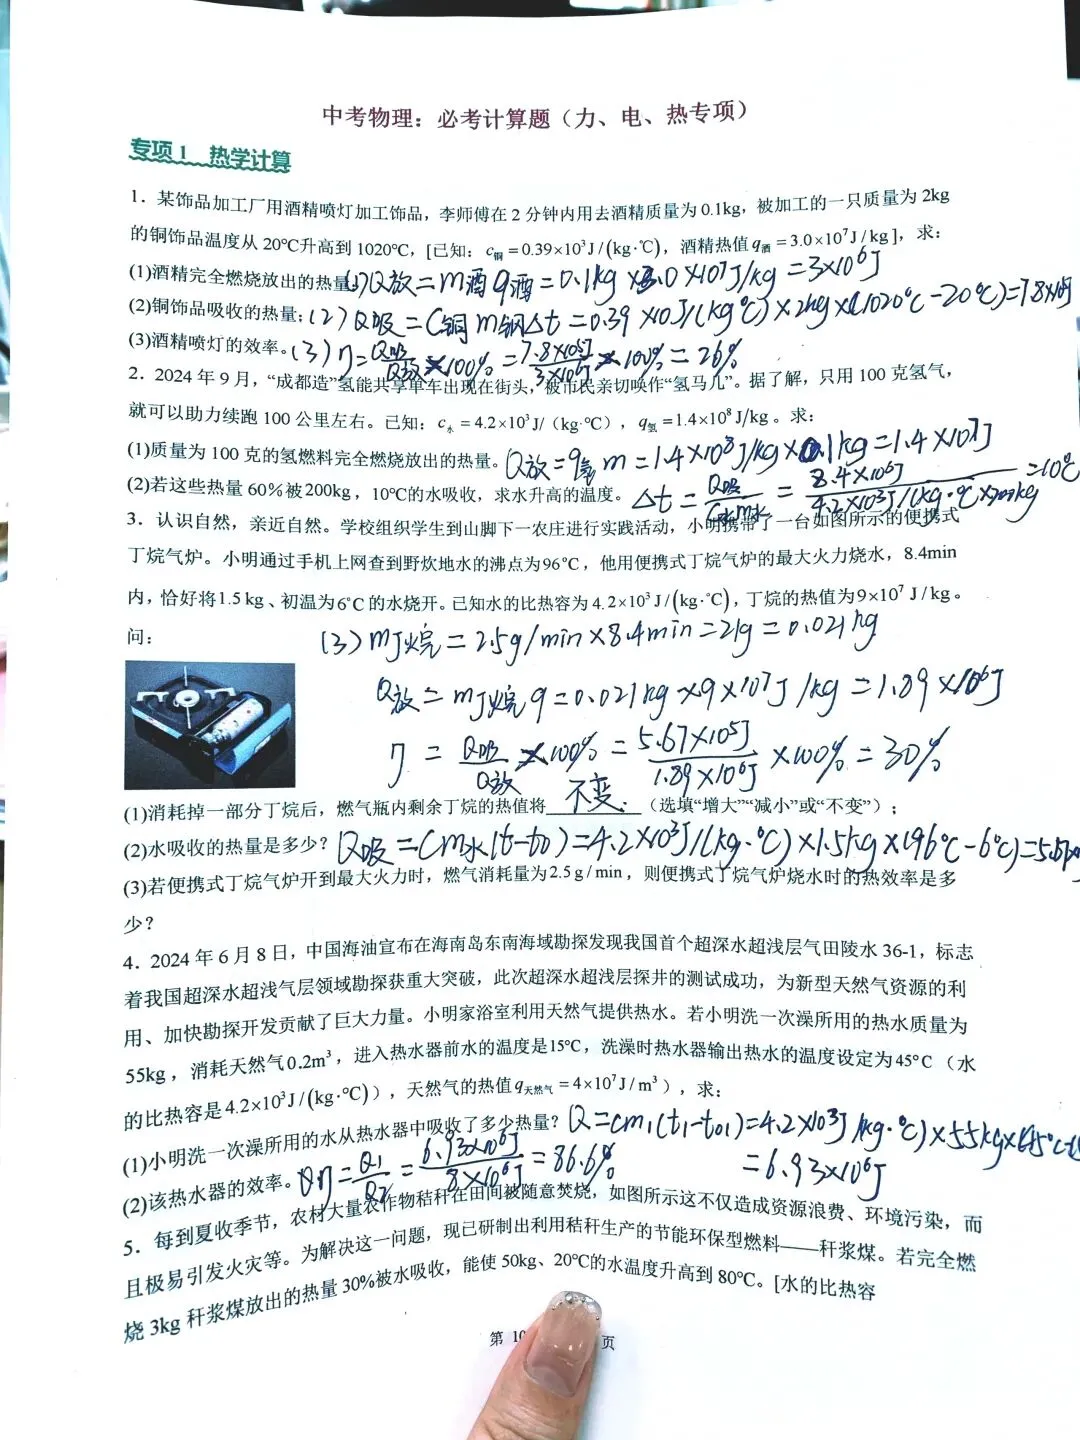 中考物理：必考计算题（力、电、热专项）
专项 1 热学计算
1．某饰品加工厂用酒精喷灯加工饰品，李师傅在 2 分钟内用去酒精质量为 0.1kg，被加工的一只质量为 2kg
的铜饰品温度从 20℃升高到 1020℃，[已知：c铜 = 0.39×10³J/(kg·℃)，酒精热值 q酒 = 3.0×10⁷J/kg]，求：
(1)酒精完全燃烧放出的热量 (1)Q放=m酒q酒=0.1kg×3.0×10⁷J/kg=3×10⁶J
(2)铜饰品吸收的热量；(2)Q吸=C铜m铜Δt=0.39×10J/(kg℃)×2kg×(1020℃-20℃)=7.8×10⁵J
(3)酒精喷灯的效率。(3)η=Q吸/Q放×100%=7.8×10⁵J/3×10⁶J×100%=26%
2．2024 年 9 月，“成都造”氢能共享单车出现在街头，被市民亲切唤作“氢马儿”。据了解，只用 100 克氢气，
就可以助力续跑 100 公里左右。已知：c水 = 4.2×10³J/（kg·℃），q氢 =1.4×10⁸J/kg。求：
(1)质量为 100 克的氢燃料完全燃烧放出的热量。Q放=q氢m=1.4×10⁸J/kg×0.1kg=1.4×10⁷J
(2)若这些热量 60%被200kg，10℃的水吸收，求水升高的温度。Δt=Q吸/C水m水=8.4×10⁶J/4.2×10³J/(kg·℃×200kg=10℃
3．认识自然，亲近自然。学校组织学生到山脚下一农庄进行实践活动，小明携带了一台如图所示的便携式
丁烷气炉。小明通过手机上网查到野炊地水的沸点为96℃，他用便携式丁烷气炉的最大火力烧水，8.4min
内，恰好将1.5 kg、初温为6℃的水烧开。已知水的比热容为 4.2×10³ J/(kg·℃)，丁烷的热值为9×10⁷ J/kg。
问：
(3)m丁烷=2.5g/min×8.4min=21g=0.021kg
Q放=m丁烷q=0.021kg×9×10⁷J/kg=1.89×10⁶J
η=Q吸/Q放×100%=5.67×10⁵J/1.89×10⁶J×100%=30%
(1)消耗掉一部分丁烷后，燃气瓶内剩余丁烷的热值将 不变. （选填“增大”“减小”或“不变”）；
(2)水吸收的热量是多少？Q吸=Cm水(t-t0)=4.2×10³J/(kg·℃)×1.5kg×(96℃-6℃)=5.67×10
(3)若便携式丁烷气炉开到最大火力时，燃气消耗量为2.5 g/min，则便携式丁烷气炉烧水时的热效率是多
少？
4．2024 年 6 月 8 日，中国海油宣布在海南岛东南海域勘探发现我国首个超深水超浅层气田陵水 36-1，标志
着我国超深水超浅气层领域勘探获重大突破，此次超深水超浅层探井的测试成功，为新型天然气资源的利
用、加快勘探开发贡献了巨大力量。小明家浴室利用天然气提供热水。若小明洗一次澡所用的热水质量为
55kg，消耗天然气0.2m³，进入热水器前水的温度是15℃，洗澡时热水器输出热水的温度设定为45℃（水
的比热容是4.2×10³J/(kg·℃)），天然气的热值q天然气 = 4×10⁷J/m³），求：
(1)小明洗一次澡所用的水从热水器中吸收了多少热量？Q=cm₁(t₁-t₀₁)=4.2×10³J/(kg·℃)×55kg×(45℃-
=6.93×10⁶J
(2)该热水器的效率。η=Q₁/Q₂=6.93×10⁶J/8×10⁶J=86.6%
5．每到夏收季节，农村大量农作物秸秆在田间被随意焚烧，如图所示这不仅造成资源浪费、环境污染，而
且极易引发火灾等。为解决这一问题，现已研制出利用秸秆生产的节能环保型燃料——秆浆煤。若完全燃
烧 3kg 秆浆煤放出的热量 30%被水吸收，能使 50kg、20℃的水温度升高到 80℃。[水的比热容
第 10 页